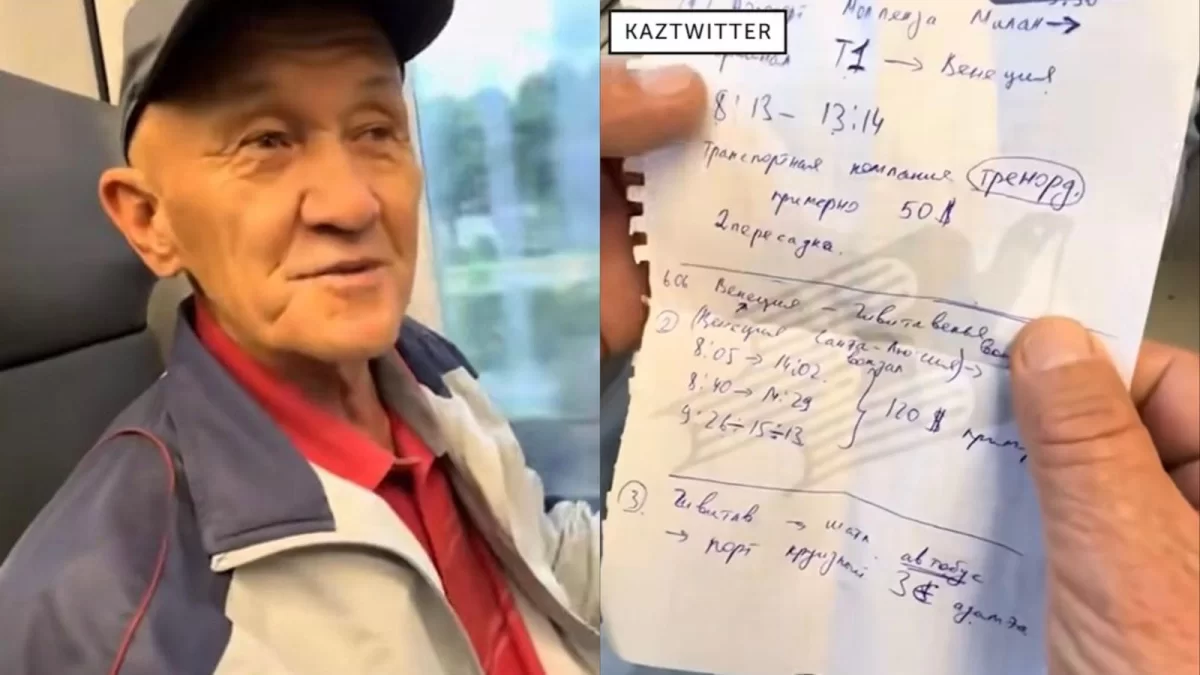 KAZTWITTER
Малпенза Милан →
T1 → Венеция
8:13 – 13:14
Транспортная компания тренорд.
примерно 50$
2 пересадка.
6.06 Венеция – Чивитавекья
② (Венеция Санта-Люсия) →
вокзал
8:05 → 14:02.
8:40 → 14:29
9:26 ÷ 15 ÷ 13
120 $
③ Чивитав → шатл. автобус
→ порт круизный 3€ адамға